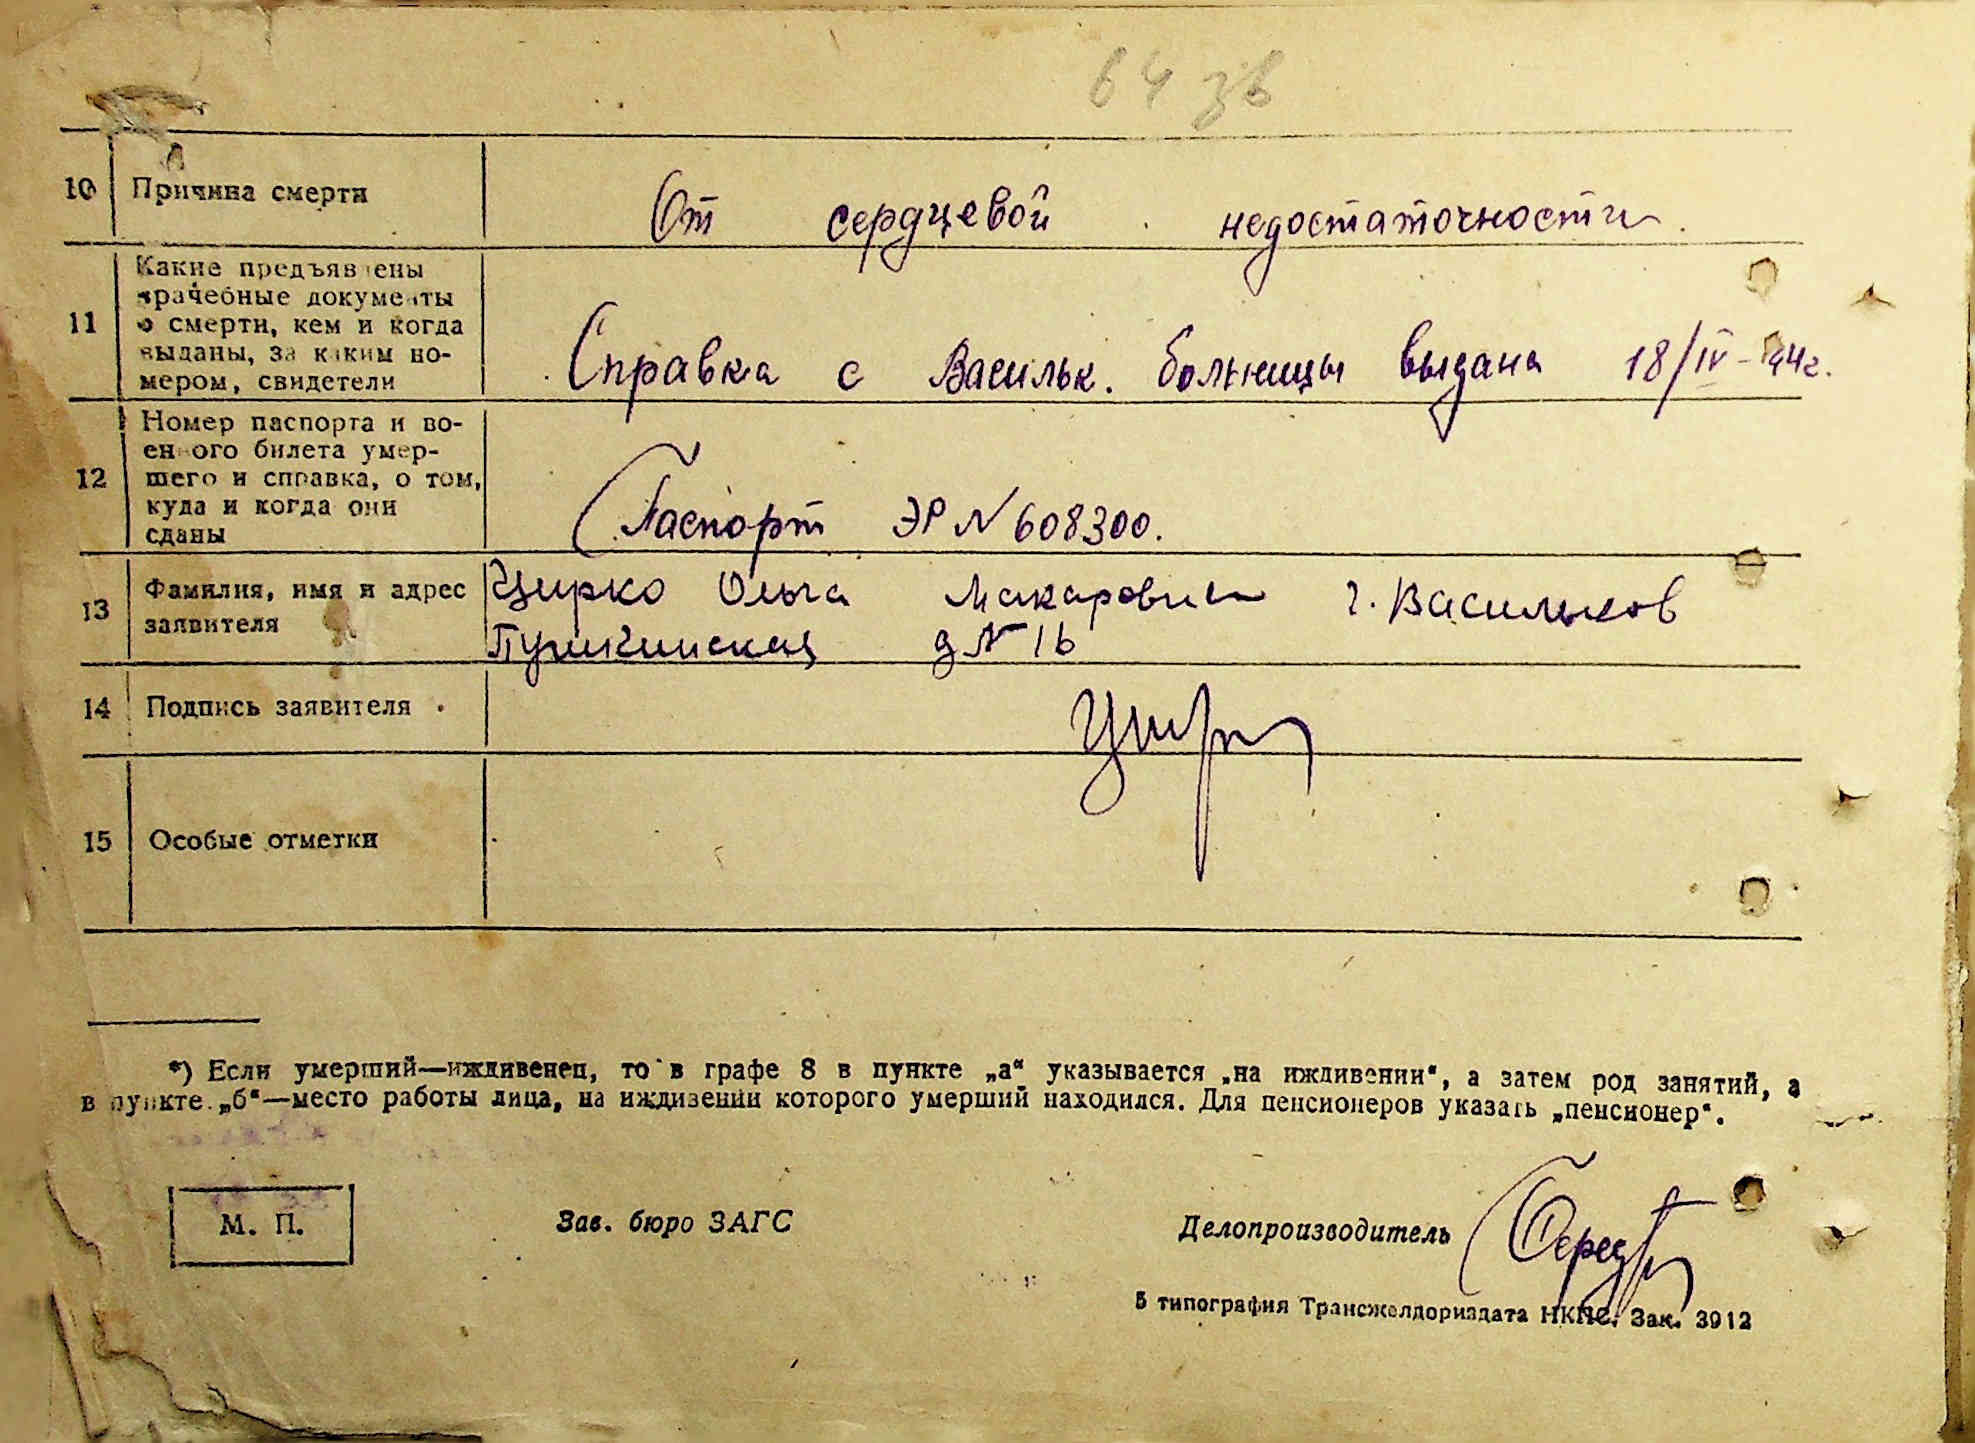 64 зв
10 Причина смерти От сердцевой недостаточности.
11 Какие предъявлены
врачебные документы
о смерти, кем и когда
выданы, за каким но-
мером, свидетели
Справка с Васильк. больницы выдана 18/IV-44г.
12 Номер паспорта и во-
енного билета умер-
шего и справка, о том,
куда и когда они
сданы
Паспорт ЭР N 608300.
13 Фамилия, имя и адрес
заявителя
Цирко Ольга Макаровна г. Васильков
Пушкинская д N 16
14 Подпись заявителя
15 Особые отметки
*) Если умерший—иждивенец, то в графе 8 в пункте „а“ указывается „на иждивении“, а затем род занятий, а
в пункте „б“—место работы лица, на иждивении которого умерший находился. Для пенсионеров указать „пенсионер“.
М. П. Зав. бюро ЗАГС Делопроизводитель
5 типография Трансжелдориздата НКПС. Зак. 3912